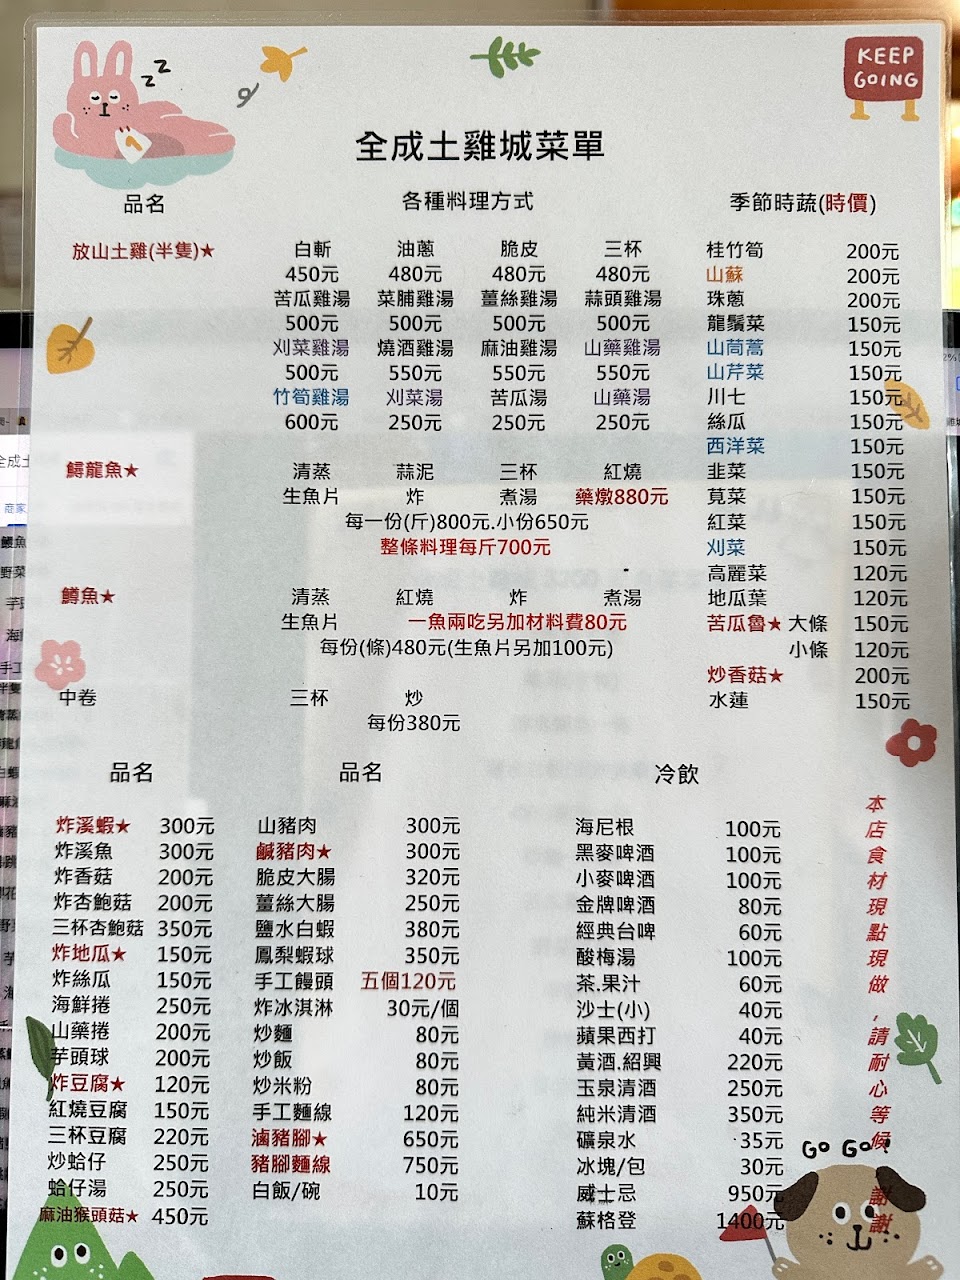 KEEP
GOING
全成土雞城菜單
品名 各種料理方式 季節時蔬(時價)
放山土雞(半隻)★ 白斬 油蔥 脆皮 三杯 桂竹筍 200元
450元 480元 480元 480元 山蘇 200元
苦瓜雞湯 菜脯雞湯 薑絲雞湯 蒜頭雞湯 珠蔥 200元
500元 500元 500元 500元 龍鬚菜 150元
刈菜雞湯 燒酒雞湯 麻油雞湯 山藥雞湯 山茼蒿 150元
500元 550元 550元 550元 山芹菜 150元
竹筍雞湯 刈菜湯 苦瓜湯 山藥湯 川七 150元
600元 250元 250元 250元 絲瓜 150元
西洋菜 150元
鱘龍魚★ 清蒸 蒜泥 三杯 紅燒 韭菜 150元
生魚片 炸 煮湯 藥燉880元 莧菜 150元
每一份(斤)800元.小份650元 紅菜 150元
整條料理每斤700元 刈菜 150元
高麗菜 120元
鱒魚★ 清蒸 紅燒 炸 煮湯 地瓜葉 120元
生魚片 一魚兩吃另加材料費80元 苦瓜魯★ 大條 150元
每份(條)480元(生魚片另加100元) 小條 120元
炒香菇★ 200元
中卷 三杯 炒 水蓮 150元
每份380元
品名 品名 冷飲
炸溪蝦★ 300元 山豬肉 300元 海尼根 100元
炸溪魚 300元 鹹豬肉★ 300元 黑麥啤酒 100元
炸香菇 200元 脆皮大腸 320元 小麥啤酒 100元
炸杏鮑菇 200元 薑絲大腸 250元 金牌啤酒 80元
三杯杏鮑菇 350元 鹽水白蝦 380元 經典台啤 60元
炸地瓜★ 150元 鳳梨蝦球 350元 酸梅湯 100元
炸絲瓜 150元 手工饅頭 五個120元 茶.果汁 60元
海鮮捲 250元 炸冰淇淋 30元/個 沙士(小) 40元
山藥捲 200元 炒麵 80元 蘋果西打 40元
芋頭球 200元 炒飯 80元 黃酒.紹興 220元
炸豆腐★ 120元 炒米粉 80元 玉泉清酒 250元
紅燒豆腐 150元 手工麵線 120元 純米清酒 350元
三杯豆腐 220元 滷豬腳★ 650元 礦泉水 35元
炒蛤仔 250元 豬腳麵線 750元 冰塊/包 30元
蛤仔湯 250元 白飯/碗 10元 威士忌 950元
麻油猴頭菇★ 450元 蘇格登 1400元
本店食材現點現做,請耐心等候 謝謝
GO GO!